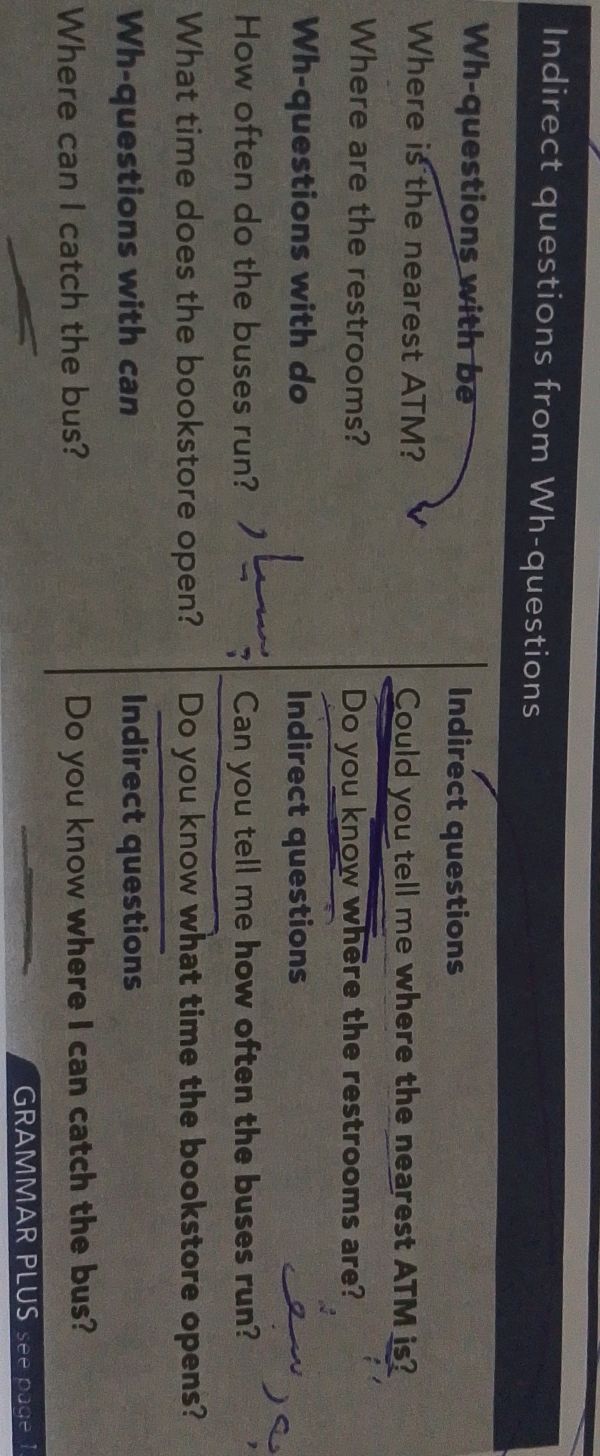 Indirect questions from Wh-questions
Wh-questions with be
Where is the nearest ATM?
Where are the restrooms?
Wh-questions with do
How often do the buses run?
What time does the bookstore open?
Wh-questions with can
Where can I catch the bus?
Indirect questions
Could you tell me where the nearest ATM is?
Do you know where the restrooms are?
Indirect questions
Can you tell me how often the buses run?
Do you know what time the bookstore opens?
Indirect questions
Do you know where I can catch the bus?
GRAMMAR PLUS see page